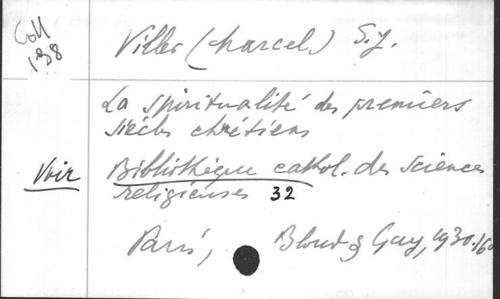 Coll
138
Viller (Marcel) S.J.
La spiritualité des premiers
siècles chrétiens
Voir Bibliothèque cathol. des sciences
religieuses 32
Paris, Bloud & Gay, 1930.